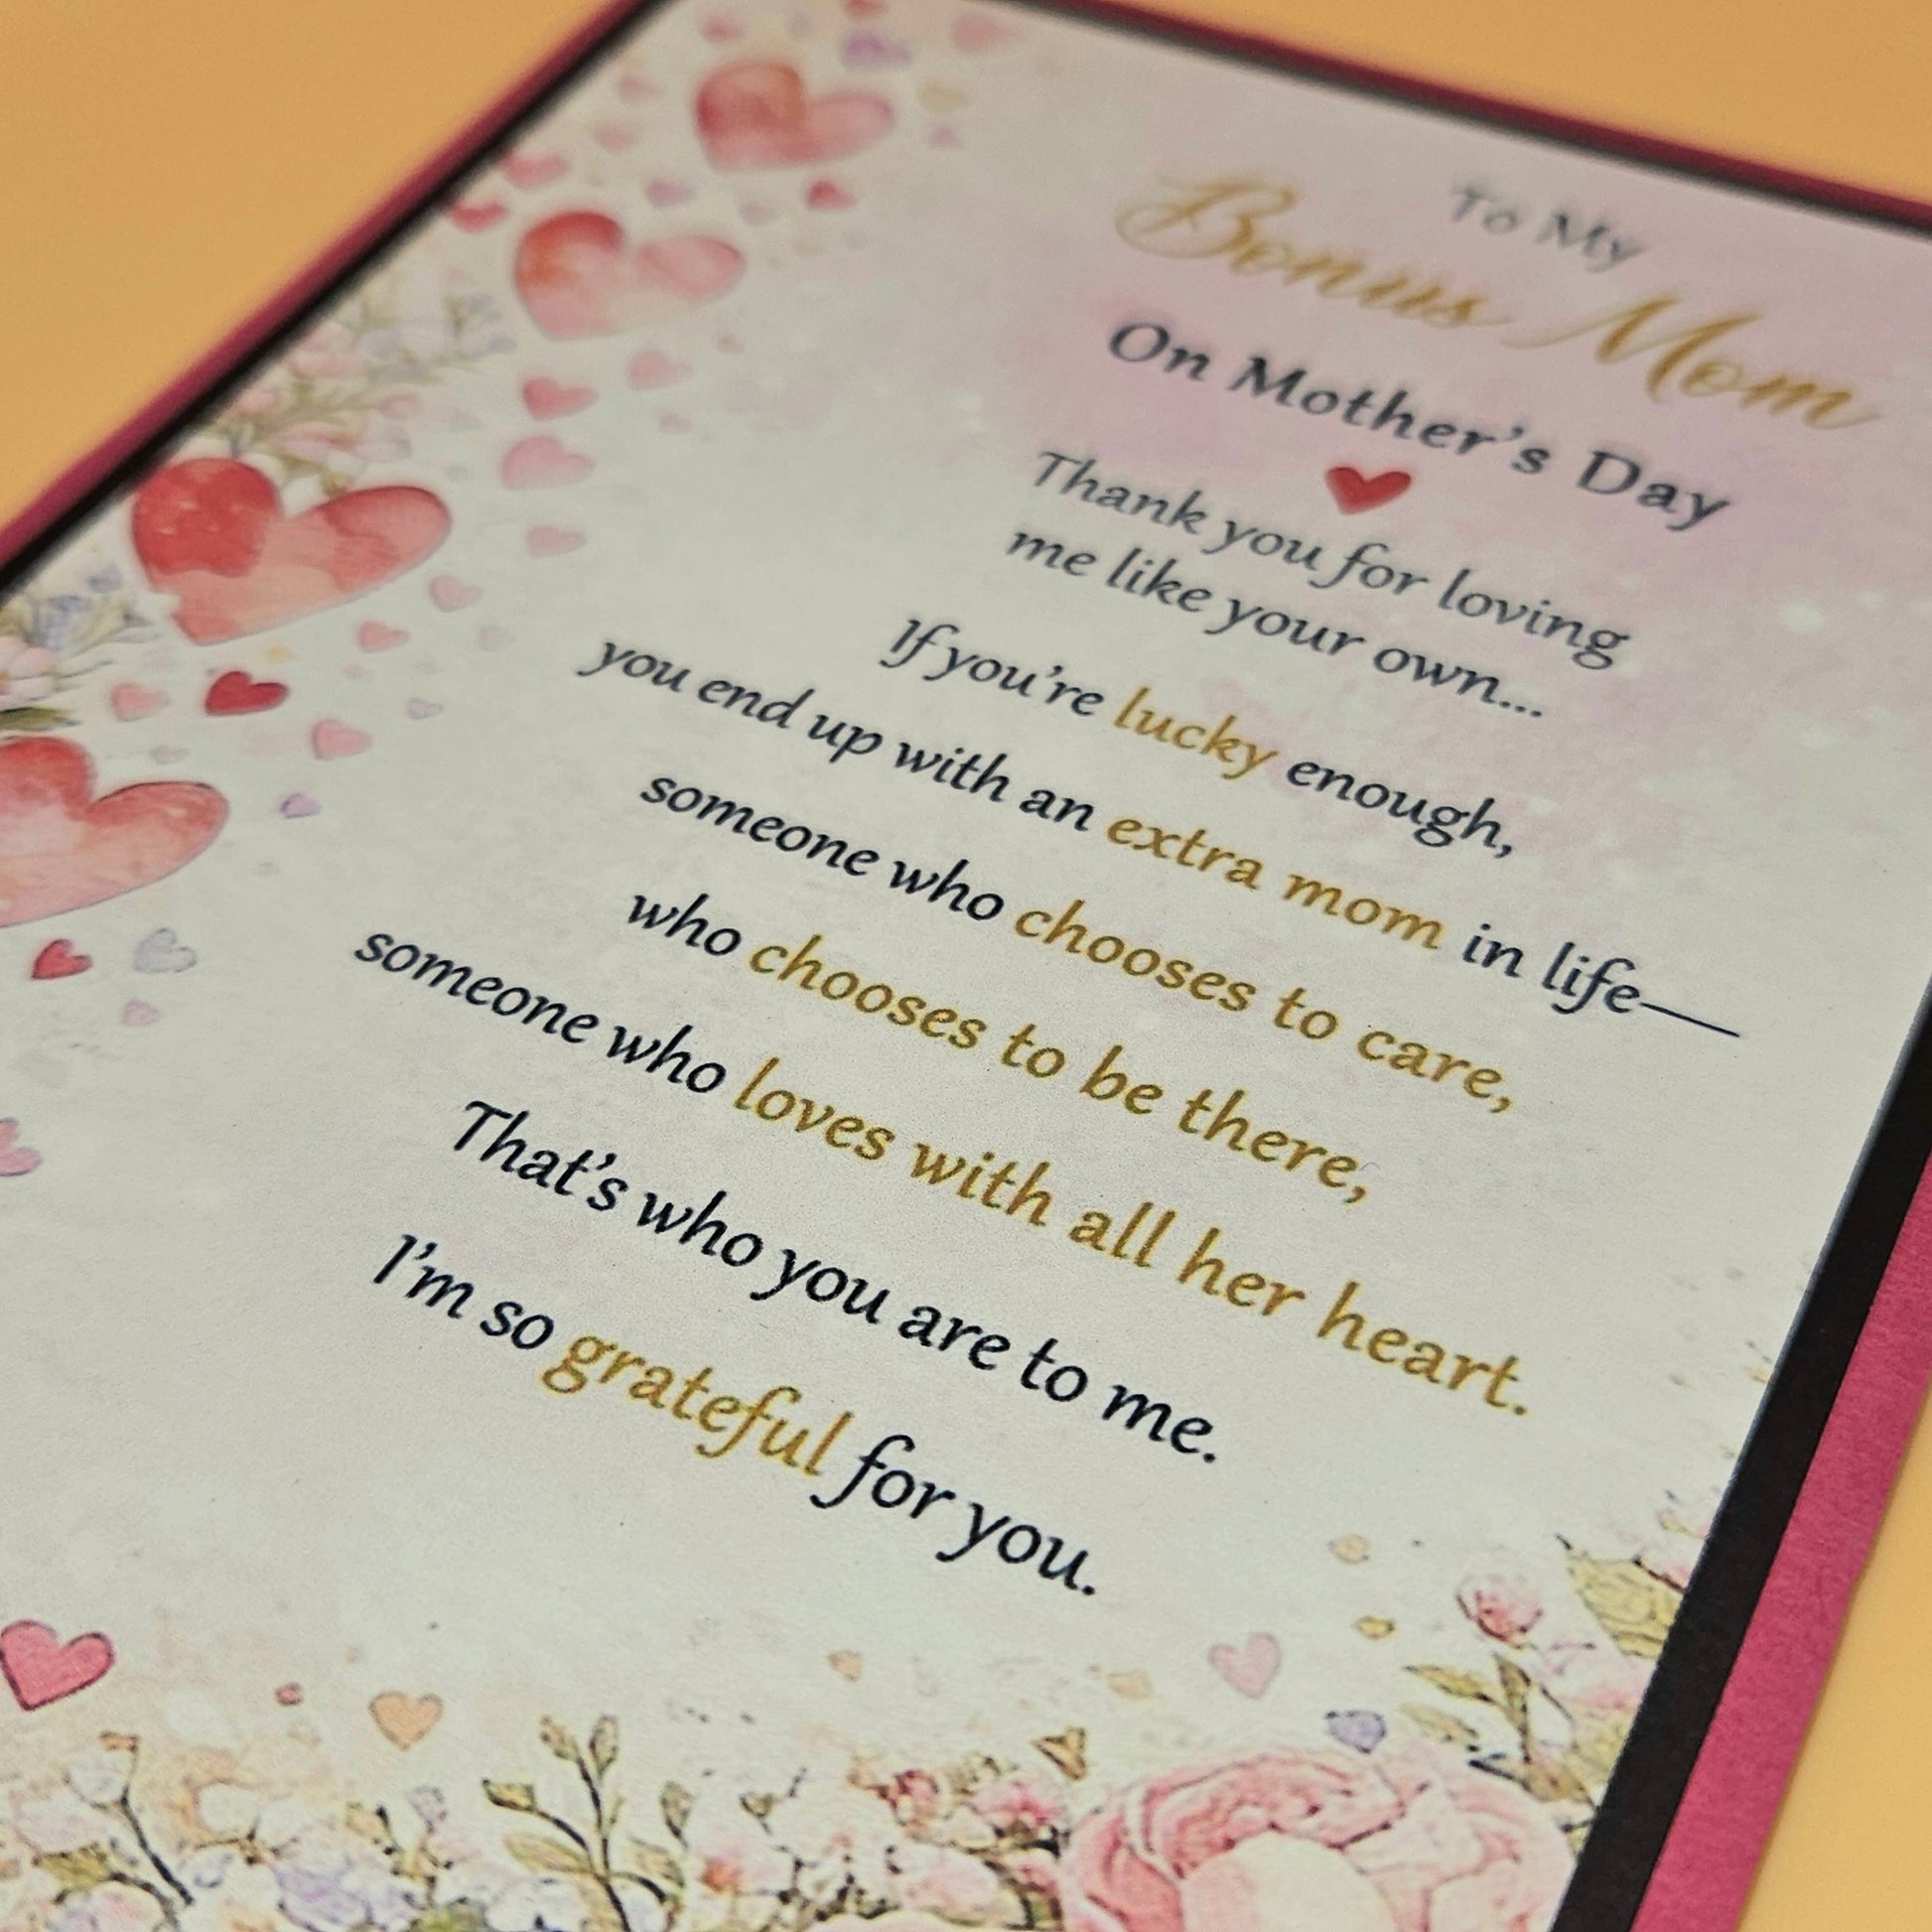 To My
Bonus Mom
On Mother's Day
Thank you for loving
me like your own...
If you're lucky enough,
you end up with an extra mom in life—
someone who chooses to care,
who chooses to be there,
someone who loves with all her heart.
That's who you are to me.
I'm so grateful for you.